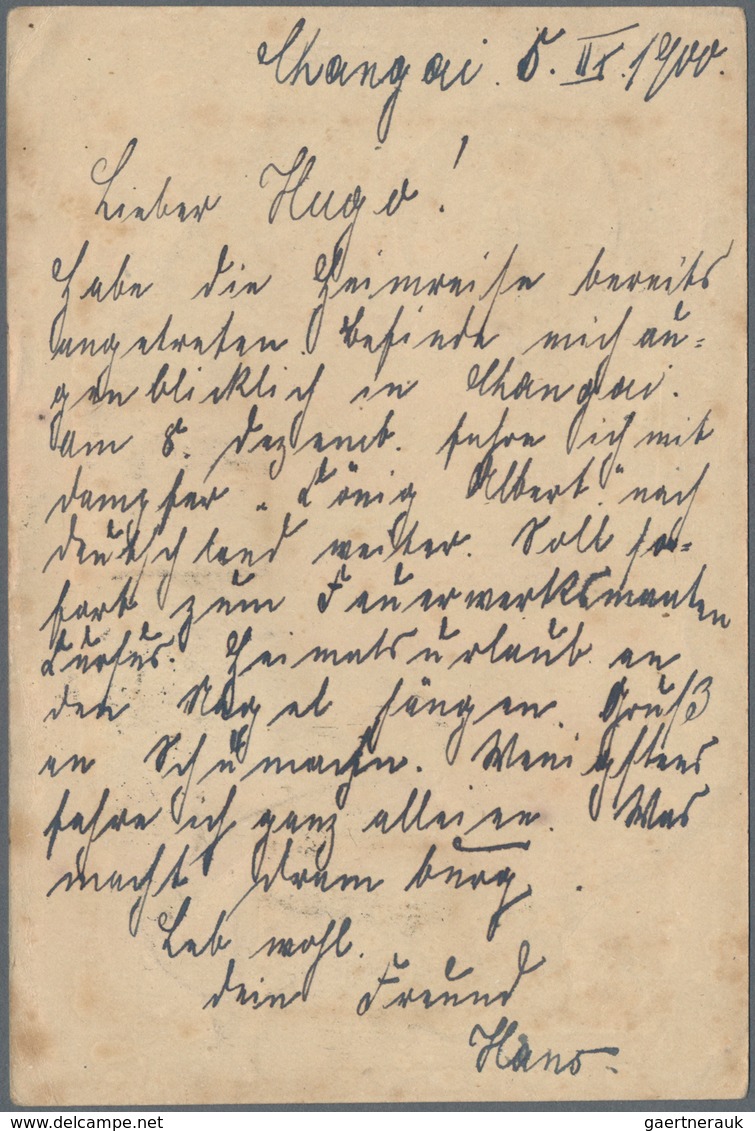 Changai. 5. IX. 1900.
Lieber Hugo!
Habe die Heimreise bereits
angetreten. Befinde mich au-
genblicklich in Changai.
Am 8. Dezemb. fahre ich mit
Dampfer „König Albert" nach
Deutschland weiter. Soll so-
fort zum Feuerwerksmaaten
Kursus. Heimatsurlaub an
den Nagel hängen. Gruß
an Schumachn. Wenigstens
fahre ich ganz alleien. Was
macht Dramburg.
Leb wohl.
Dein Freund
Hans.
gaertnerauk